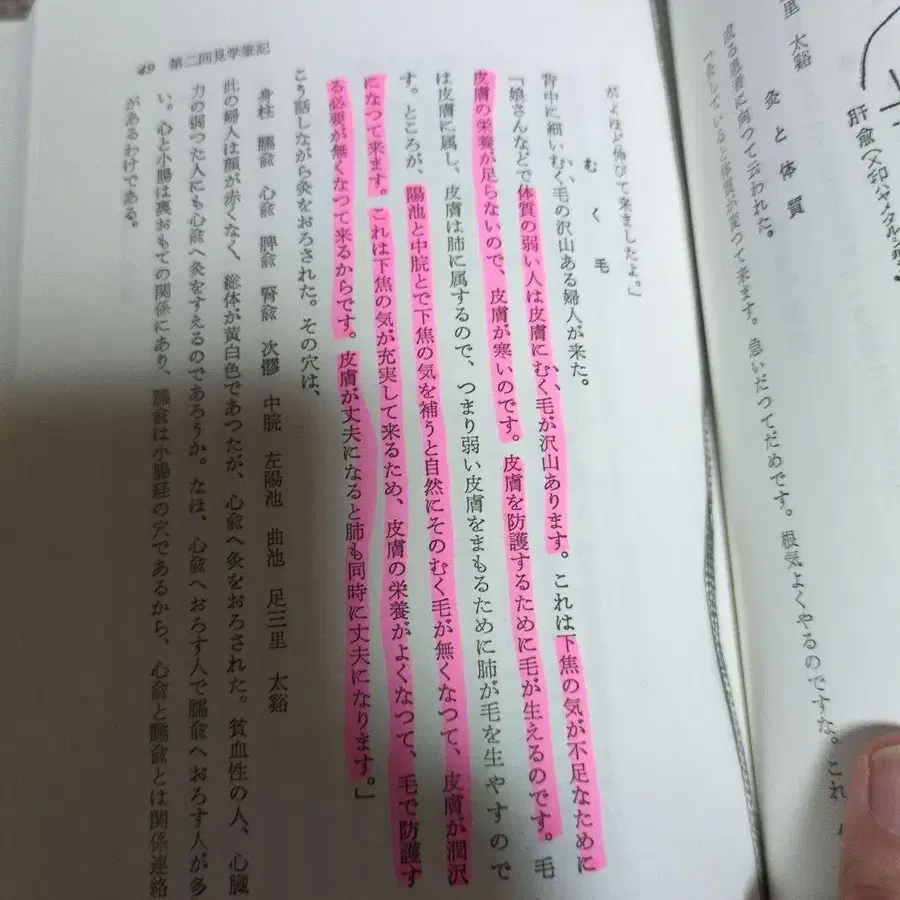 里　太谿
灸と体質
或る患者に向つて云われた。
来ます。急いだつてだめです。根気よくやるのですな。これ
肝兪
がよほど伸びて来ましたよ。」
むく毛
背中に細いむく毛の沢山ある婦人が来た。
「娘さんなどで体質の弱い人は皮膚にむく毛が沢山あります。これは下焦の気が不足なために
皮膚の栄養が足らないので、皮膚が寒いのです。皮膚を防護するために毛が生えるのです。毛
は皮膚に属し、皮膚は肺に属するので、つまり弱い皮膚をまもるために肺が毛を生やすので
す。ところが、陽池と中脘とで下焦の気を補うと自然にそのむく毛が無くなつて、皮膚が潤沢
になつて来ます。これは下焦の気が充実して来るため、皮膚の栄養がよくなつて、毛で防護す
る必要が無くなつて来るからです。皮膚が丈夫になると肺も同時に丈夫になります。」
こう話しながら灸をおろされた。その穴は、
身柱　臑兪　心兪　脾兪　腎兪　次髎　中脘　左陽池　曲池　足三里　太谿
此の婦人は顔が赤くなく、総体が黄白色であつたが、心兪へ灸をおろされた。貧血性の人、心臓
力の弱つた人にも心兪へ灸をすえるのであろうか。なほ、心兪へおろす人で臑兪へおろす人が多
い。心と小腸は裏おもての関係にあり、臑兪は小腸経の穴であるから、心兪と臑兪とは関係連絡
があるわけである。
49 第二回見学筆記